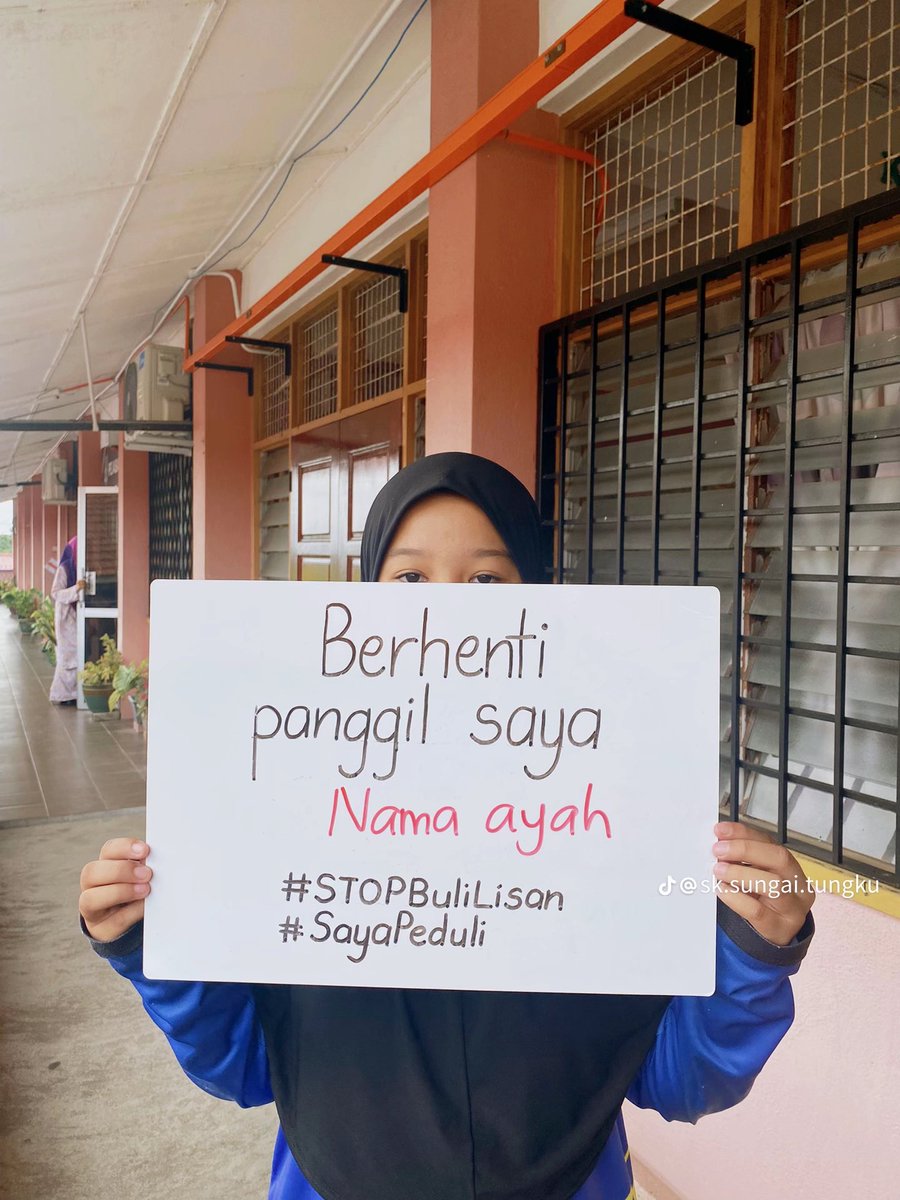 Berhenti
panggil saya
Nama ayah
#STOPBuliLisan
#SayaPeduli
@sk.sungai.tungku